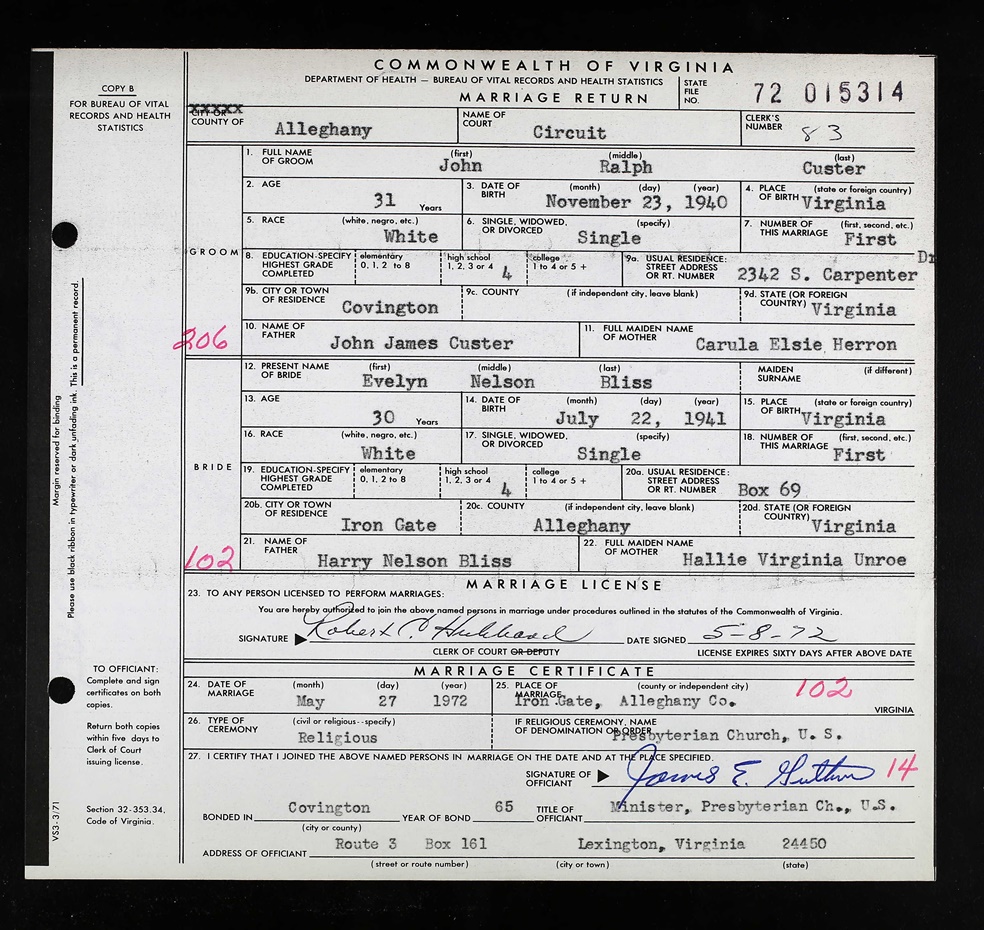 COMMONWEALTH OF VIRGINIA
DEPARTMENT OF HEALTH — BUREAU OF VITAL RECORDS AND HEALTH STATISTICS
MARRIAGE RETURN
STATE FILE NO. 72 015314
COPY B
FOR BUREAU OF VITAL
RECORDS AND HEALTH
STATISTICS
CITY OR
COUNTY OF Alleghany
NAME OF COURT Circuit
CLERK'S NUMBER 83
GROOM
1. FULL NAME OF GROOM (first) John (middle) Ralph (last) Custer
2. AGE 31 Years
3. DATE OF BIRTH (month) (day) (year) November 23, 1940
4. PLACE OF BIRTH (state or foreign country) Virginia
5. RACE (white, negro, etc.) White
6. SINGLE, WIDOWED, OR DIVORCED (specify) Single
7. NUMBER OF THIS MARRIAGE (first, second, etc.) First
8. EDUCATION-SPECIFY HIGHEST GRADE COMPLETED elementary 0, 1, 2 to 8 high school 1, 2, 3 or 4 4 college 1 to 4 or 5 +
9a. USUAL RESIDENCE: STREET ADDRESS OR RT. NUMBER 2342 S. Carpenter Dr
9b. CITY OR TOWN OF RESIDENCE Covington
9c. COUNTY (if independent city, leave blank)
9d. STATE (OR FOREIGN COUNTRY) Virginia
206
10. NAME OF FATHER John James Custer
11. FULL MAIDEN NAME OF MOTHER Carula Elsie Herron
BRIDE
12. PRESENT NAME OF BRIDE (first) Evelyn (middle) Nelson (last) Bliss
MAIDEN SURNAME (if different)
13. AGE 30 Years
14. DATE OF BIRTH (month) (day) (year) July 22, 1941
15. PLACE OF BIRTH (state or foreign country) Virginia
16. RACE (white, negro, etc.) White
17. SINGLE, WIDOWED, OR DIVORCED (specify) Single
18. NUMBER OF THIS MARRIAGE (first, second, etc.) First
19. EDUCATION-SPECIFY HIGHEST GRADE COMPLETED elementary 0, 1, 2 to 8 high school 1, 2, 3 or 4 4 college 1 to 4 or 5 +
20a. USUAL RESIDENCE: STREET ADDRESS OR RT. NUMBER Box 69
20b. CITY OR TOWN OF RESIDENCE Iron Gate
20c. COUNTY (if independent city, leave blank) Alleghany
20d. STATE (OR FOREIGN COUNTRY) Virginia
102
21. NAME OF FATHER Harry Nelson Bliss
22. FULL MAIDEN NAME OF MOTHER Hallie Virginia Unroe
Margin reserved for binding
Please use black ribbon in typewriter or dark unfading ink. This is a permanent record.
MARRIAGE LICENSE
23. TO ANY PERSON LICENSED TO PERFORM MARRIAGES:
You are hereby authorized to join the above named persons in marriage under procedures outlined in the statutes of the Commonwealth of Virginia.
SIGNATURE Robert C. Hubbard DATE SIGNED 5-8-72
CLERK OF COURT OR DEPUTY LICENSE EXPIRES SIXTY DAYS AFTER ABOVE DATE
MARRIAGE CERTIFICATE
TO OFFICIANT:
Complete and sign
certificates on both
copies.
Return both copies
within five days to
Clerk of Court
issuing license.
Section 32-353.34,
Code of Virginia.
VS3-3/71
24. DATE OF MARRIAGE (month) (day) (year) May 27 1972
25. PLACE OF MARRIAGE (county or independent city) Iron Gate, Alleghany Co. 102 VIRGINIA
26. TYPE OF CEREMONY (civil or religious--specify) Religious
IF RELIGIOUS CEREMONY, NAME OF DENOMINATION OR ORDER Presbyterian Church, U. S.
27. I CERTIFY THAT I JOINED THE ABOVE NAMED PERSONS IN MARRIAGE ON THE DATE AND AT THE PLACE SPECIFIED.
SIGNATURE OF OFFICIANT James E. 14
BONDED IN Covington (city or county) YEAR OF BOND 65 TITLE OF OFFICIANT Minister, Presbyterian Ch., U.S.
ADDRESS OF OFFICIANT Route 3 Box 161 Lexington, Virginia 24450
(street or route number) (city or town) (state)